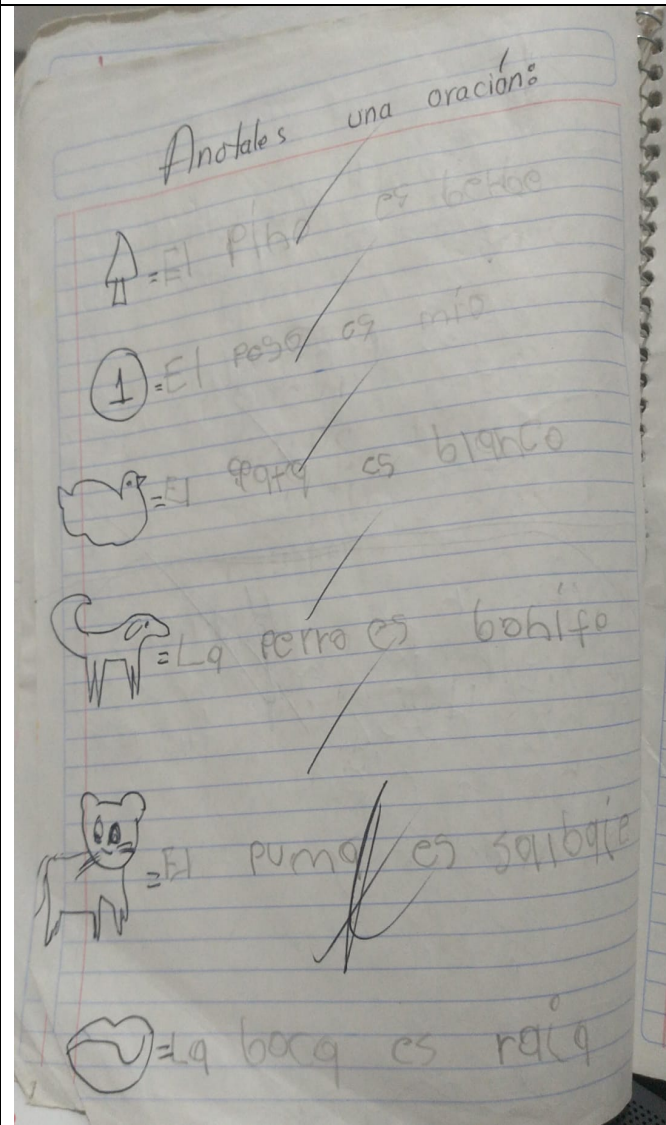 Anotales una oración:
=El Pino es berde
1 =El peso es mio
=El pato es blanco
=La perro es bonito
=El puma es salbaje
=La boca es roja